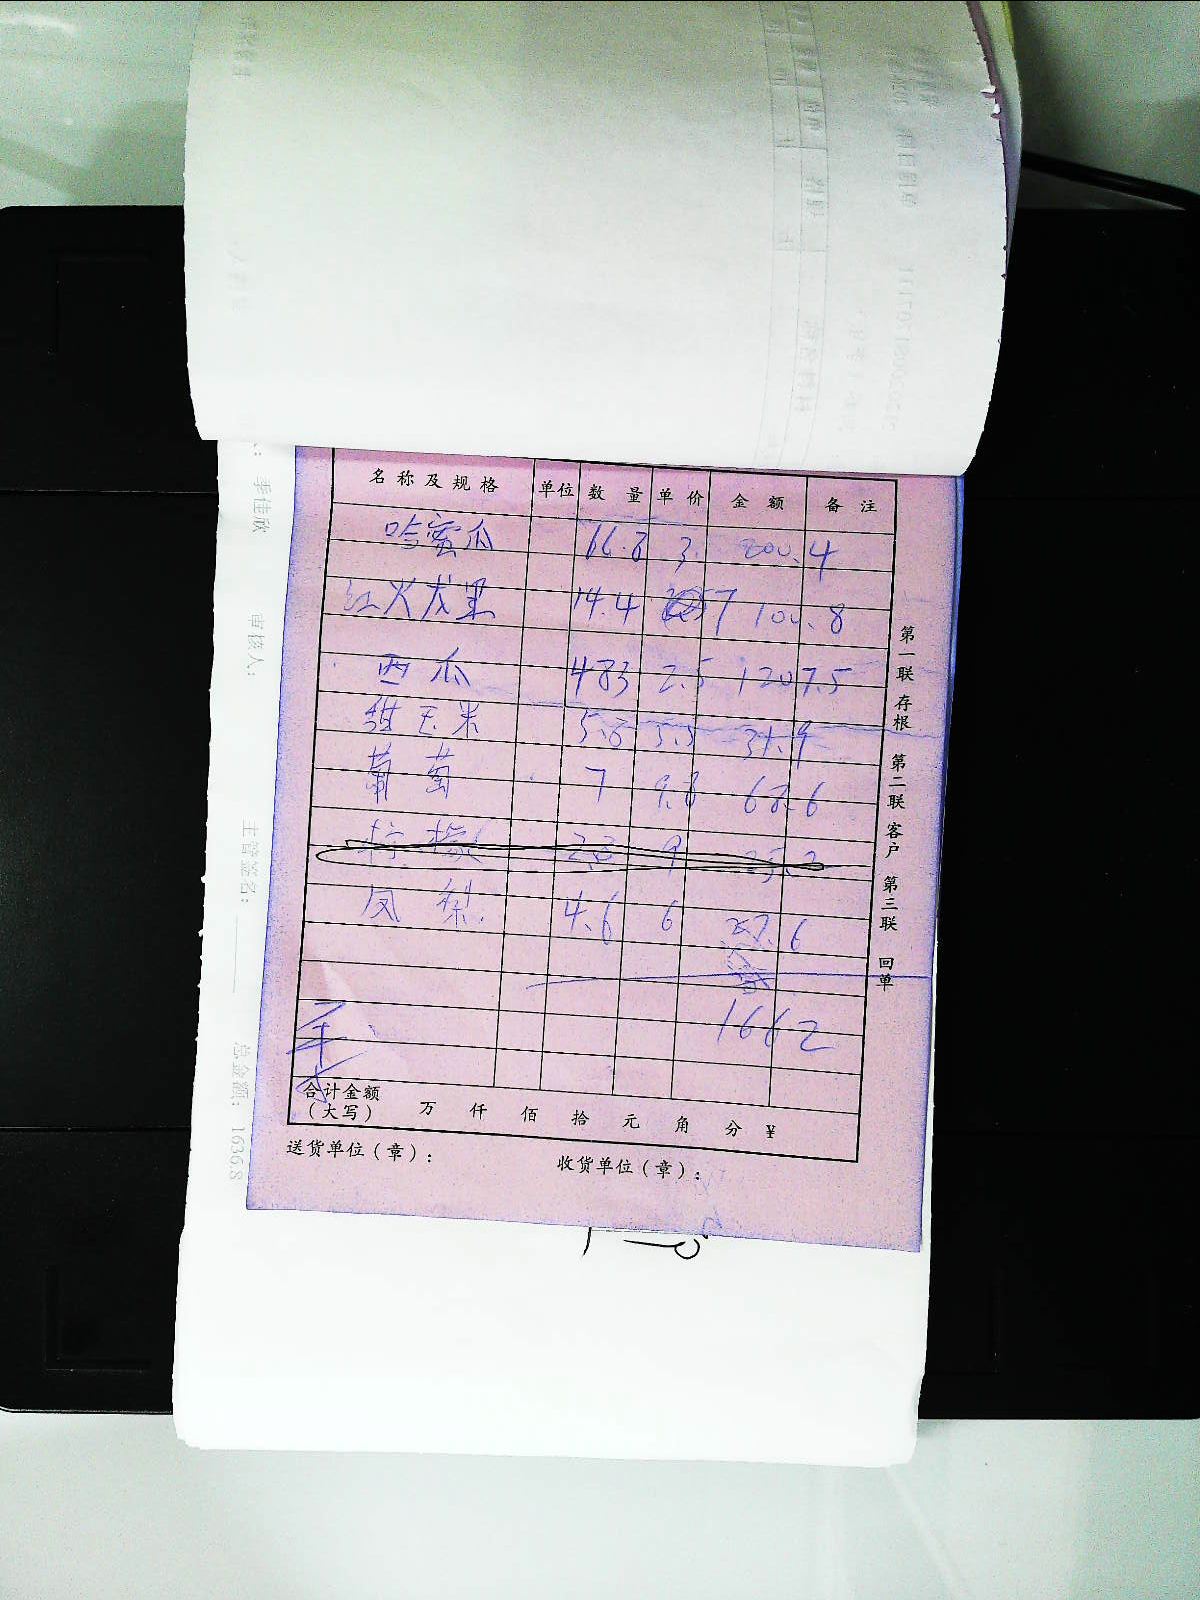 名称及规格 单位 数量 单价 金额 备注
哈蜜瓜 66.8 3. 200.4
红火龙果 14.4 7 100.8
西瓜 483 2.5 1207.5
甜玉米 5.8 5.5 31.9
葡萄 7 9.8 68.6
柠檬 2.8 9 25.2
凤梨. 4.6 6 27.6
1662
合计金额
(大写) 万 仟 佰 拾 元 角 分 ¥
送货单位(章): 收货单位(章):
第一联存根 第二联客户 第三联回单
李佳欣
审核人:
主管签名:
总金额: 1636.8